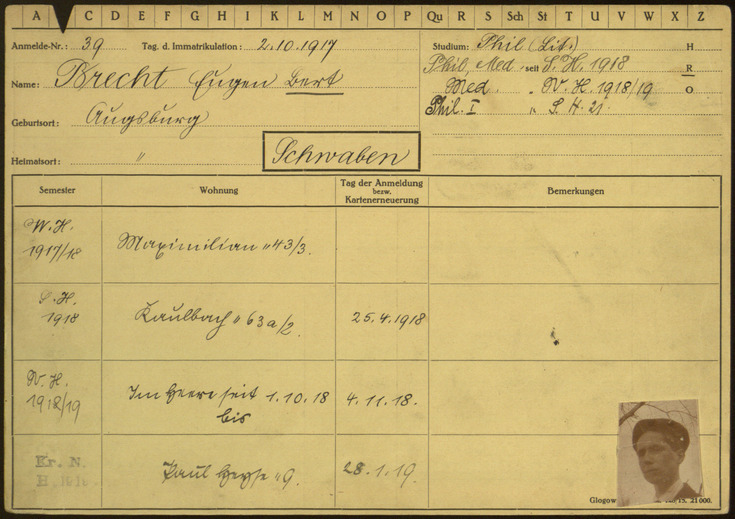 A B C D E F G H I K L M N O P Qu R S Sch St T U V W X Z
Anmelde-Nr.: 39 Tag. d. Immatrikulation: 2.10.1917
Studium: Phil (Lit.) H
Phil, Med, seit S. H. 1918 R
Name: Brecht Eugen Bert
Med. " W. H. 1918/19 O
Phil. I " S. H. 21.
Geburtsort: Augsburg
Heimatsort: " Schwaben
Semester Wohnung Tag der Anmeldung bezw. Kartenerneuerung Bemerkungen
W. H. 1917/18 Maximilian " 43/3.
S. H. 1918 Kaulbach " 63a/2. 25.4.1918
W. H. 1918/19 Im Heere seit 1.10.18 4.11.18.
bis
Kr. N. Paul Heyse " 9. 28.1.19.
Glogow 21000.